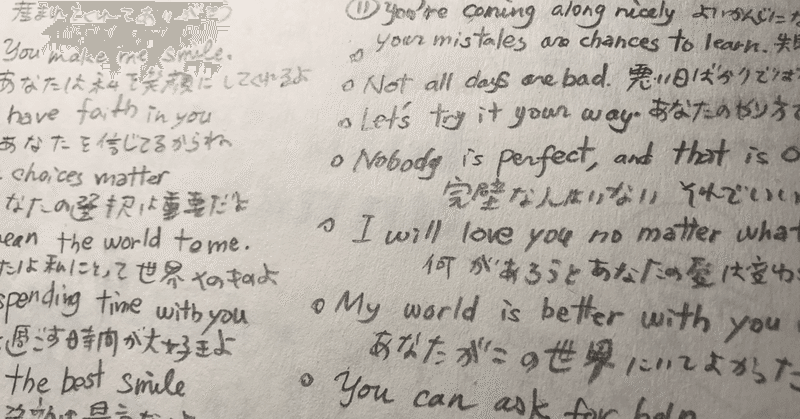 産まれてきてくれてありがとう
You make me smile.
あなたは私を笑顔にしてくれるよ
have faith in you
あなたを信じてるからね
choices matter
なたの選択は重要だよ
ean the world to me.
たは私にとって世界そのものよ
spending time with you
過ごす時間が大好きよ
the best smile
⑪ You're coming along nicely よいかんじにな
your mistales are chances to learn. 失敗
Not all days are bad. 悪い日ばかりでは
Let's try it your way. あなたのやり方で
Nobody is perfect, and that is O
完璧な人はいない それでいい
I will love you no matter what
何があろうとあなたの愛は変わ
My world is better with you
あなたがこの世界にいてよかった
You can ask for help